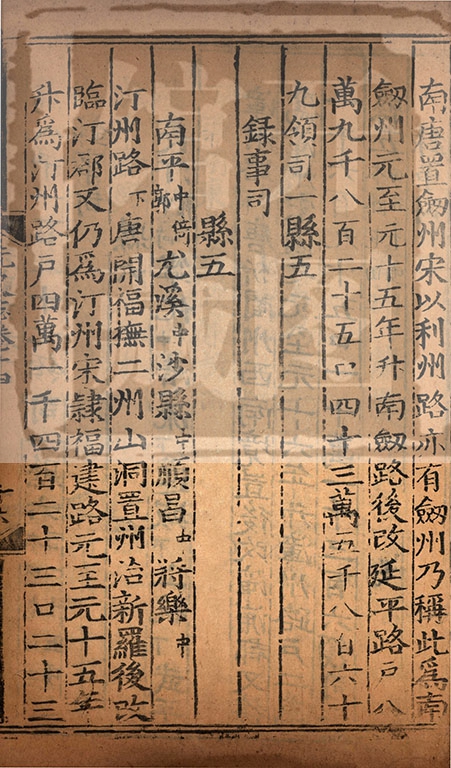 南唐置劔州宋以利州路亦有劔州乃稱此爲南
劔州元至元十五年升南劔路後改延平路戸八
萬九千八百二十五口四十三萬五千八百六十
九領司一縣五
録事司
縣五
南平中倚郭尤溪中沙縣中順昌中將樂中
汀州路下唐開福撫二州山洞置州治新羅後改
臨汀郡又仍爲汀州宋隷福建路元至元十五年
升爲汀州路戸四萬一千四百二十三口二十三